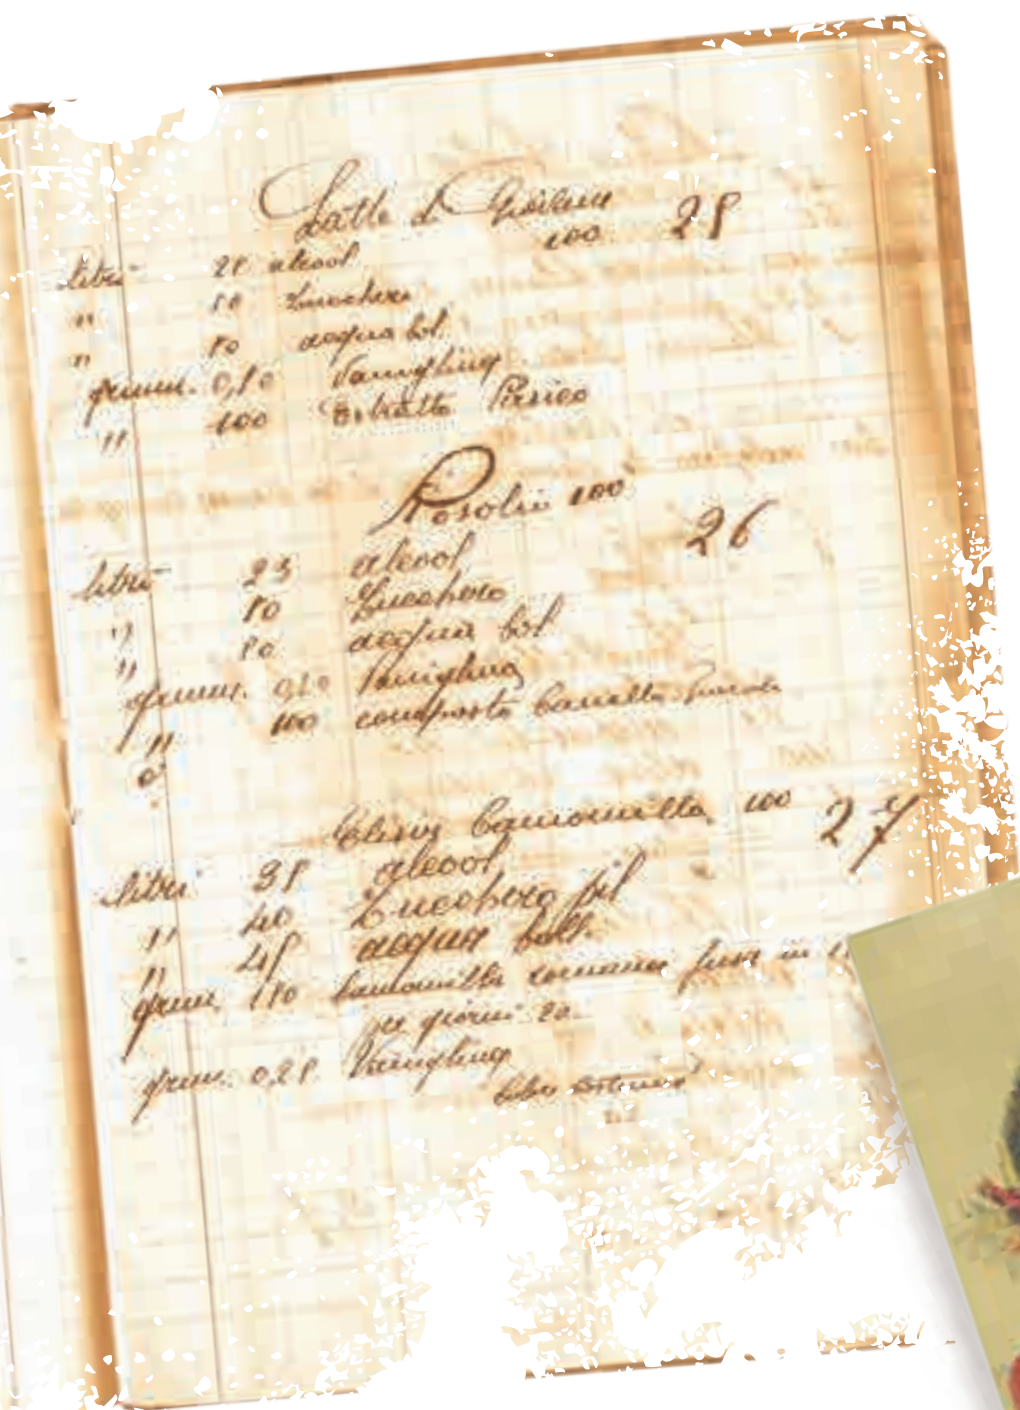 Latte di
100 25
litri 25 alcool
" 50 Zucchero
" 50 acqua bol.
gramm. 0,50 Vaniglina
" 100 Estratto Persico
Rosolio 100
26
litri 25 alcool
" 50 Zucchero
" 50 acqua bol
gramm. Vaniglina
" 100 composto
Elisir Camomilla 100 27
litri 35 alcool
" 40 Zucchero pil
" 45 acqua boll.
gram. 150 Camomilla romana fusa in
per giorni 20
gram. 0,25 Vaniglina